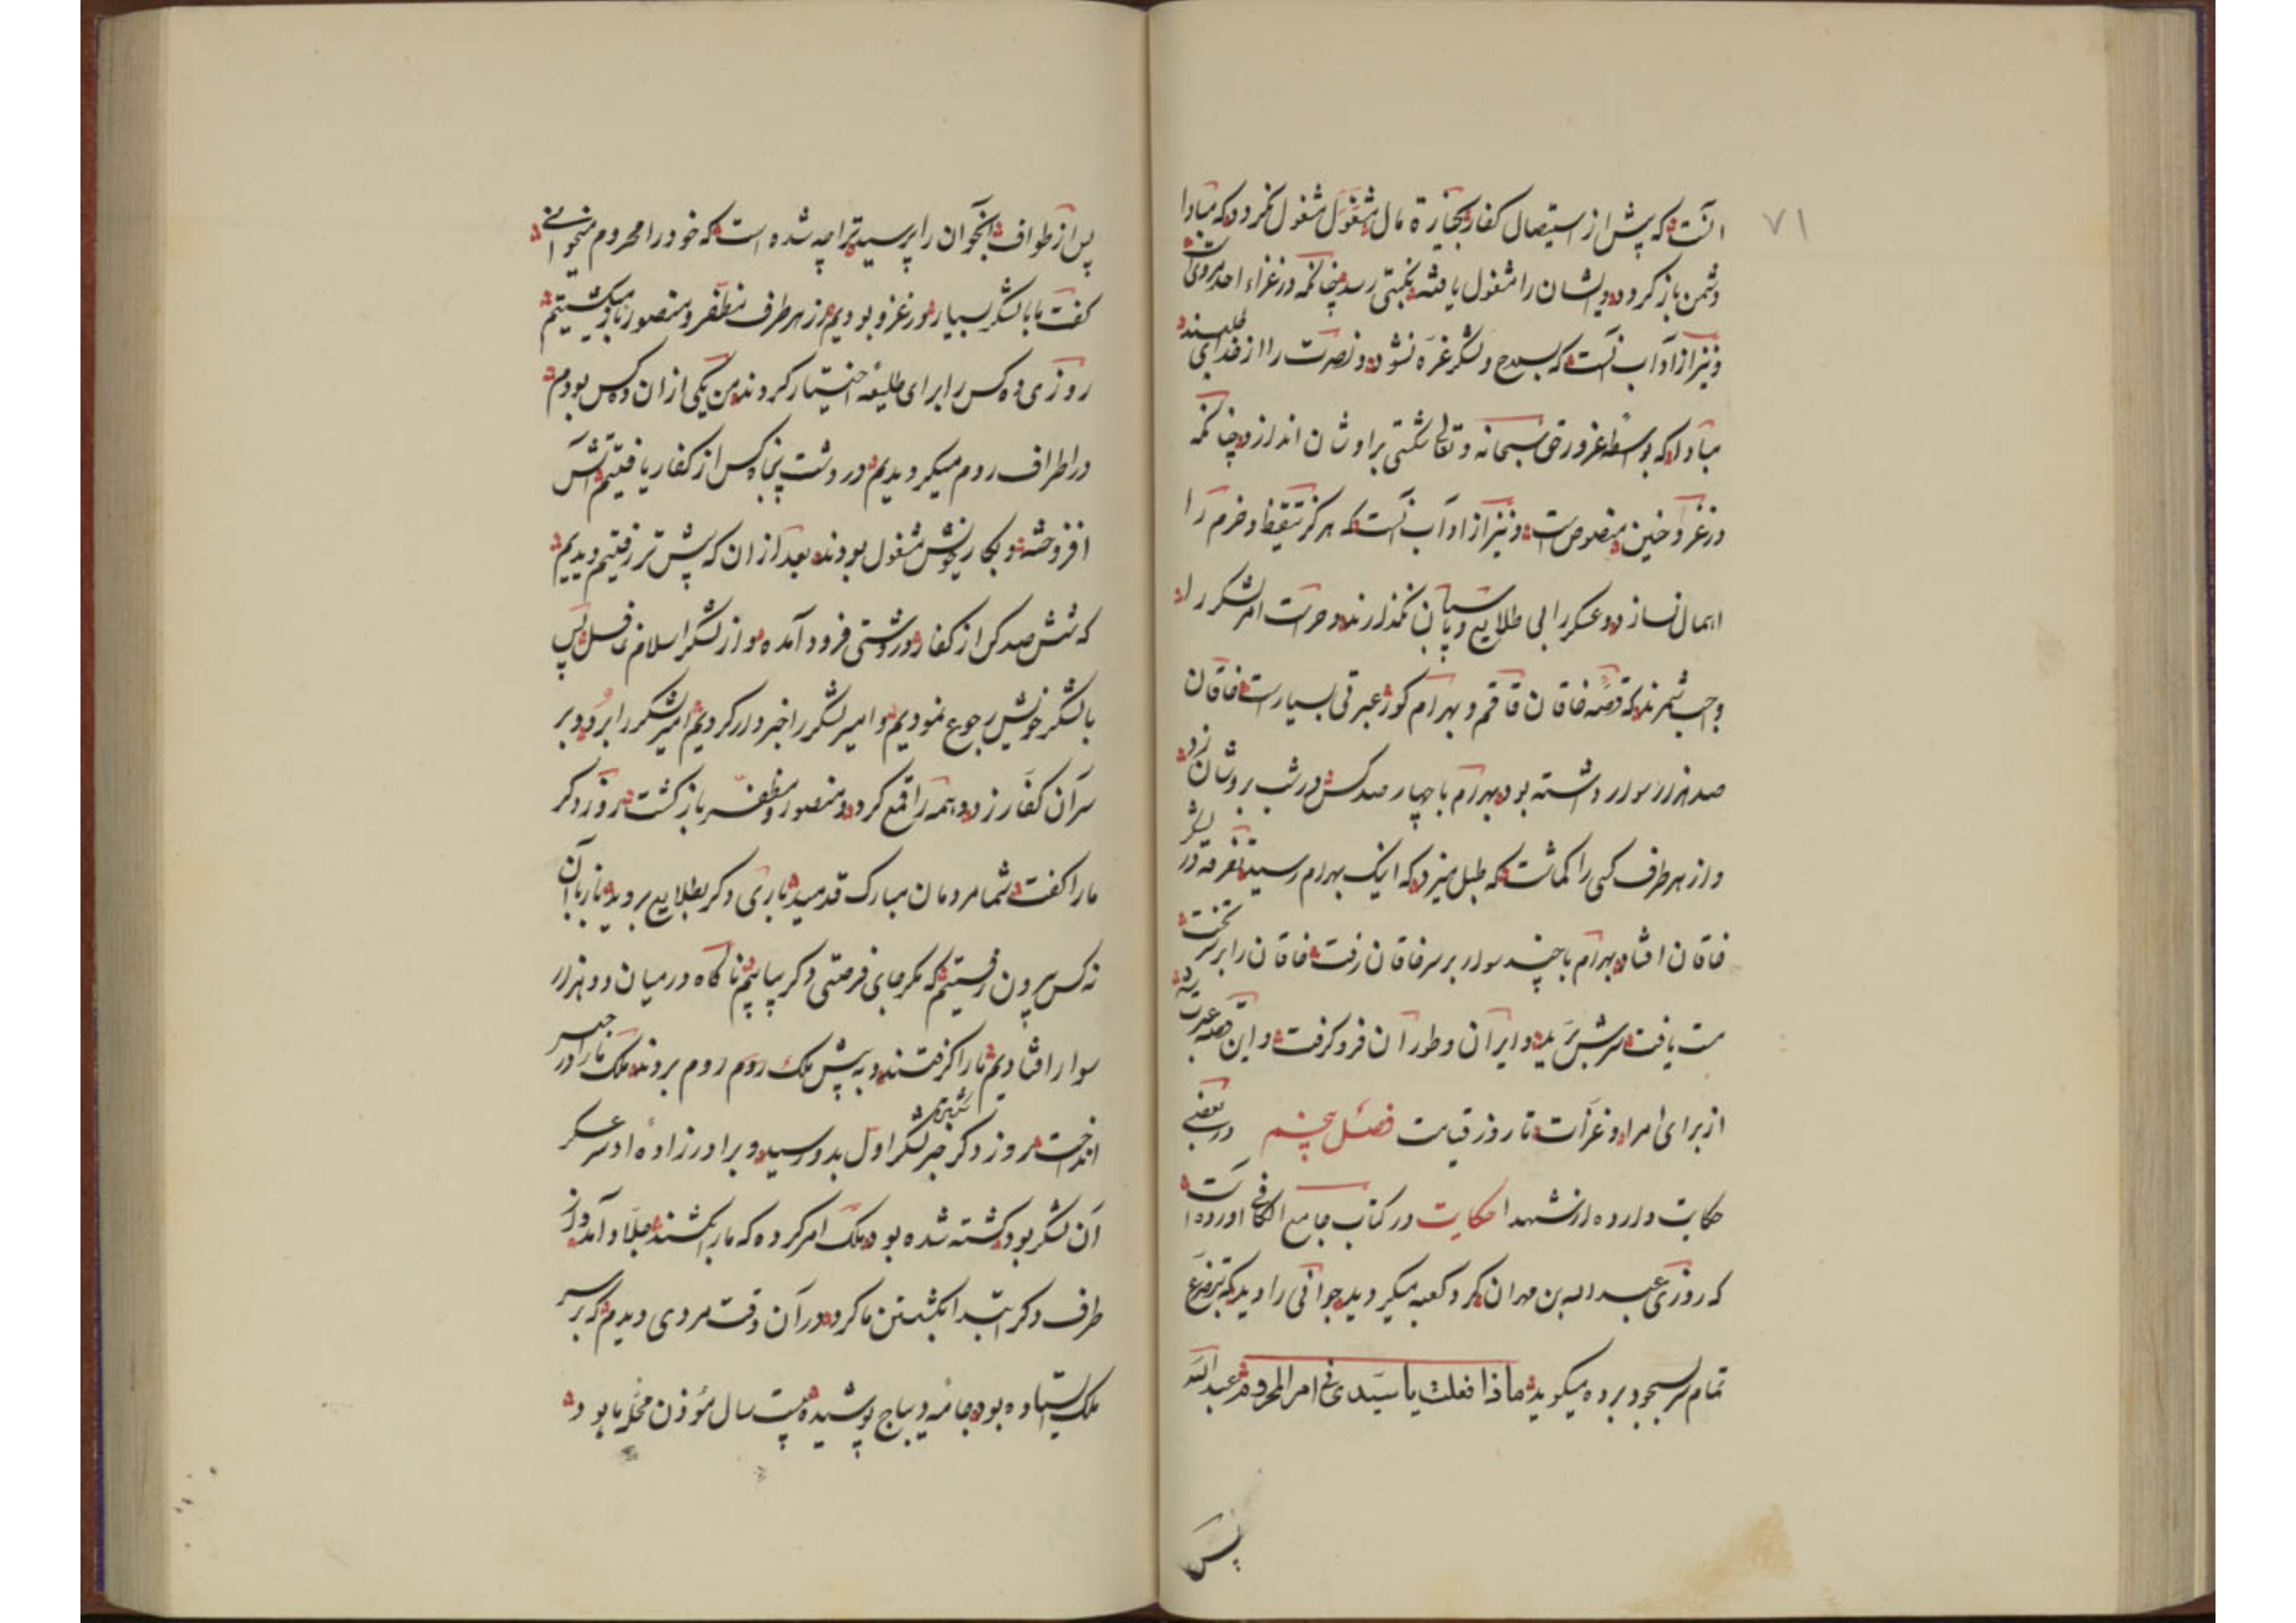 ۷۱
آنست که پیش از استیصال کفار بحیازة مال مشغول مشغول نکردد که مبادا
دشمن باز کردد و ایشان را مشغول یافته نکبتی رسد چنانکه در غزاء احد مرویست
و نیز از آداب آنست که بسلاح و لشکر غره نشود و نصرت را از خدای طلبند
مبادا که بواسطه غرور حق سبحانه و تعالی شکستی بر اوشان اندازد چنانکه
در غزو حنین منصوص است و نیز از اوآب آنست که هرکز تیقظ و حزم را
اهمال نسازد و عسکر را بی طلایع و پاسبان نکذارند و حراست امر لشکر را
واجب شمرند که قصه خاقان قاقم و بهرام کور عبرتی بسیارست خاقان
صد هزار سوار داشته بود بهرام با چهار صد کس در شب بر وشان زد
و از هر طرف کسی را کماشت که طبل میزد که اینک بهرام رسید تفرقه در لشکر
خاقان افتاد بهرام با چند سوار بر سر خاقان رفت خاقان را بر سر تخت
مست یافت سرش برید و ایران و طوران فرو کرفت و این قصه عبرت
از برای امرا و غزات تا روز قیامت فصل پنجم در بعضی
حکایت وارده از شهدا حکایت در کتاب جامع الکافی اورده است
که روزی عبد الله بن مهران کرد کعبه میکردید جوانی را دید که بتضرع
تمام سر بسجود برده میکوید ماذا فعلت یا سیدی فی امر المحروم عبد الله
پس
پس از طواف آنجوان را پرسید ترا چه شده است که خود را محروم میخوانی
کفت ما با لشکر بسیار در غزو بودیم از هر طرف مظفر و منصور باز میکشتیم
روزی ده کس را برای طلیعه اختیار کردند من یکی از ان ده کس بودم
در اطراف روم میکردیدیم در دشت پنجاه کس از کفار یافتیم آتش
افروخته و بکار خویش مشغول بودند بعد از ان که پیش تر رفتیم دیدیم
که شش صد کس از کفار در دشتی فرود آمده و از لشکر اسلام غافل پس
با لشکر خویش رجوع نمودیم و امیر لشکر را خبردار کردیم امیر لشکر را برد و بر
سر آن کفار زد و همه را قمع کرد و منصور و مظفر باز کشت روز دکر
ما را کفت شما مردمان مبارک قدمید باری دکر بطلایع بروید باز بآن
نه کس بیرون رفتیم که مکر جای فرصتی دکر بیابیم ناکاه در میان دو هزار
سوار افتادیم ما را کرفتند و به پیش ملک روم روم بردند ملک ما را در حبس
انداخت روز دکر خبر لشکر اول بدو رسید و برادر زاده او سر عسکر
آن لشکر بود کشته شده بود ملک امر کرده که ما را بکشند جلاد آمد و از
طرف دکر ابتدا بکشتن ما کرد در آن وقت مردی دیدم که بر سر
ملک ایستاده بود جامه دیباج پوشیده بیست سال مؤذن محل ما بود